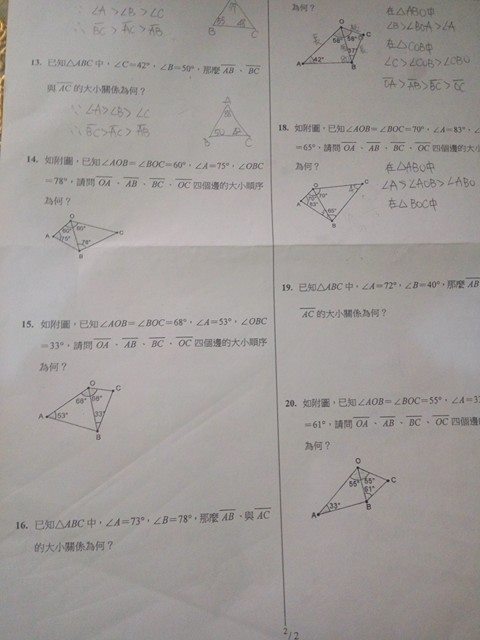 ∵ ∠A > ∠B > ∠C
∴ BC > AC > AB
B
C
13. 已知△ABC 中，∠C＝42°，∠B＝50°，那麼 AB、BC
與 AC 的大小關係為何？
∵ ∠A > ∠B > ∠C
∴ BC > AC > AB
A
88
50
42
B
C
14. 如附圖，已知∠AOB＝∠BOC＝60°，∠A＝75°，∠OBC
＝78°，請問 OA、AB、BC、OC 四個邊的大小順序
為何？
O
A
B
C
60°
60°
75°
78°
15. 如附圖，已知∠AOB＝∠BOC＝68°，∠A＝53°，∠OBC
＝33°，請問 OA、AB、BC、OC 四個邊的大小順序
為何？
O
C
A
B
68°
68°
53°
33°
16. 已知△ABC 中，∠A＝73°，∠B＝78°，那麼 AB、與 AC
的大小關係為何？
為何？
在△ABO中
∠B > ∠BOA > ∠A
在△COB中
∠C > ∠COB > ∠CBO
OA > AB > BC > OC
O
C
A
B
58°
58°
42°
37°
18. 如附圖，已知∠AOB＝∠BOC＝70°，∠A＝83°，∠
＝65°，請問 OA、AB、BC、OC 四個邊的大小
為何？
在△ABO中
∠A > ∠AOB > ∠ABO
在△BOC中
O
C
A
B
70°
70°
83°
65°
45
19. 已知△ABC 中，∠A＝72°，∠B＝40°，那麼 AB
AC 的大小關係為何？
20. 如附圖，已知∠AOB＝∠BOC＝55°，∠A＝33
＝61°，請問 OA、AB、BC、OC 四個邊
為何？
O
C
A
B
55°
55°
61°
33°
2/2